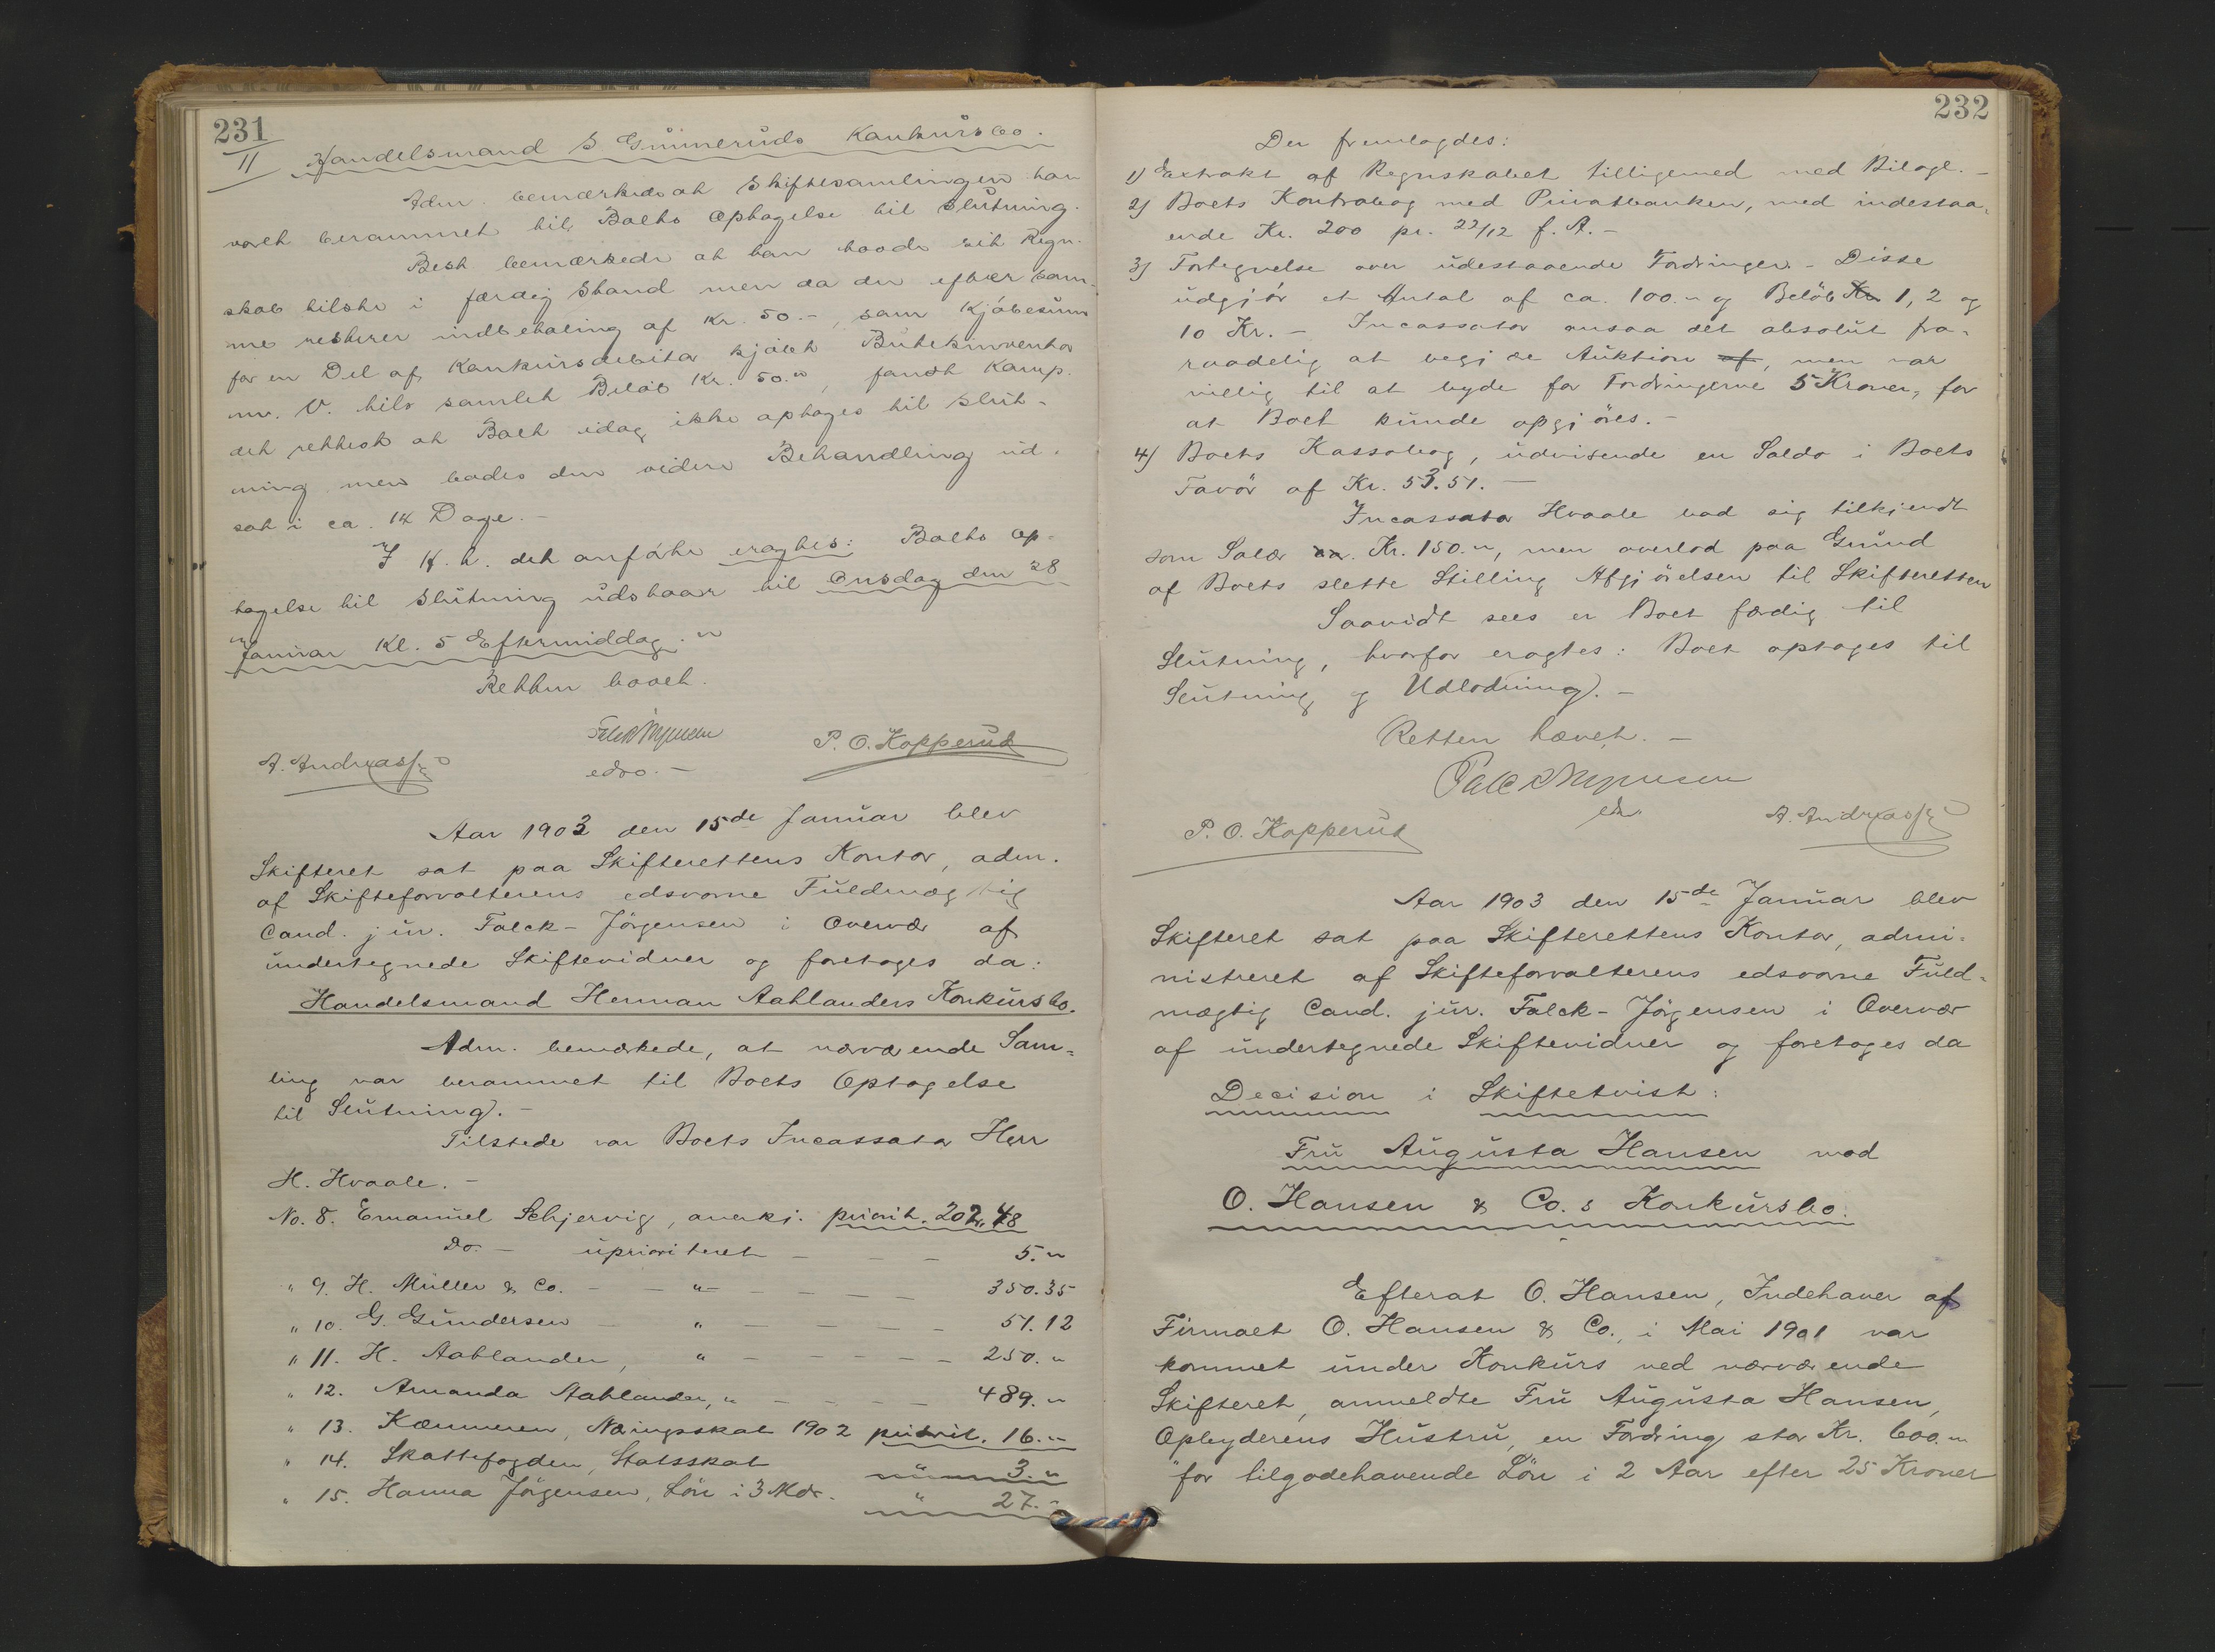 231
II Handelsmand S Gunneruds Konkursbo.
Adm. bemærkede at Skiftesamlingen han
valt berammet til Boets Optagelse til Slutning.
Best. bemærkede at han havde sit Regn-
skab tilste i færdig Stand men da der efter sam-
me resterer indbetaling af Kr. 50.-, som Kjøbesum
for en Del af Konkursdebitor kjøbt Butikinventar
m. V. tils samlet Beløb Kr. 50.", fandt Komp.
det rettest at Boet idag ikke optages til Slut-
ning men bades den videre Behandling ud-
sat i ca. 14 Dage.-
I H. h. det anførte eragtes: Boets Op-
tagelse til Slutning udstaar til Onsdag den 28
Januar Kl. 5 Eftermiddag."
Retten hævet.
P. O. Kopperud
A. Andreass
edsv.-
Aar 1903 den 15de Januar blev
Skifteret sat paa Skifterettens Kontor, adm.
af Skifteforvalterens edsvorne Fuldmægtig
Cand. jur. Falck-Jörgensen i Overvær af
undertegnede Skiftevidner og foretoges da:
Handelsmand Herman Aahlanders Konkursbo.
Adm. bemærkede, at nærværende Sam=
ling var berammet til Boets Optagelse
til Slutning.-
Tilstede var Boets Incassator Herr
H. Hvaale.-
No. 8. Emanuel Schjervig, anerkj. priorit. 202,48
Do.- uprioriteret - - 5."
" 9. H. Müller & Co. - - "- - - - - 350.35
" 10. G. Gundersen - " - - - - 51.12
" 11. H. Aahlander, " - - - - - 250."
" 12. Amanda Aahlander, " - - - - 489."
" 13. Kæmneren, Næringsskat 1902 priorit. 16."
" 14. Skattefogden, Statsskat " 3."
" 15. Hanna Jörgensen, Lön i 3 Mdr. " 27.-
232
Der fremlagdes:
1) Extrakt af Regnskabet tilligemed med Bilagl.-
2) Boets Kontrabog med Privatbanken, med indestaa-
ende Kr. 200 pr. 22/12 f. A.-
3) Fortegnelse over udestaaende Fordringer.- Disse
udgjör et Antal af ca. 100." og Belöb Kr. 1, 2 og
10 Kr.- Incassator ansaa det absolut fra-
raadelig at begjære Auktion af, men var
villig til at byde for Fordringerne 5 Kroner, for
at Boet kunde opgjöres.-
4) Boets Kassabog, udvisende en Saldo i Boets
Favör af Kr. 53.51.-
Incassator Hvaale bad sig tilkjendt
som Salær ca. Kr. 150.", men overlod paa Grund
af Boets slette Stilling Afgjörelsen til Skifteretten
Saavidt sees er Boet færdig til
Slutning, hvorfor eragtes: Boet optages til
Slutning og Udlodning.-
Retten hævet.-
P. O. Kopperud
A. Andreass
Aar 1903 den 15de Januar blev
Skifteret sat paa Skifterettens Kontor, admi-
nistreret af Skifteforvalterens edsvorne Fuld-
mægtig Cand. jur. Falck-Jörgensen i Overvær
af undertegnede Skiftevidner og foretoges da
Decision i Skiftetvist:
Fru Augusta Hansen mod
O. Hansen & Co.s Konkursbo.
Efterat O. Hansen, Indehaver af
Firmaet O. Hansen & Co., i Mai 1901 var
kommet under Konkurs ved nærværende
Skifteret, anmeldte Fru Augusta Hansen,
Opbyderens Hustru, en Fordring stor Kr. 600."
"for tilgodehavende Lön i 2 Aar efter 25 Kroner